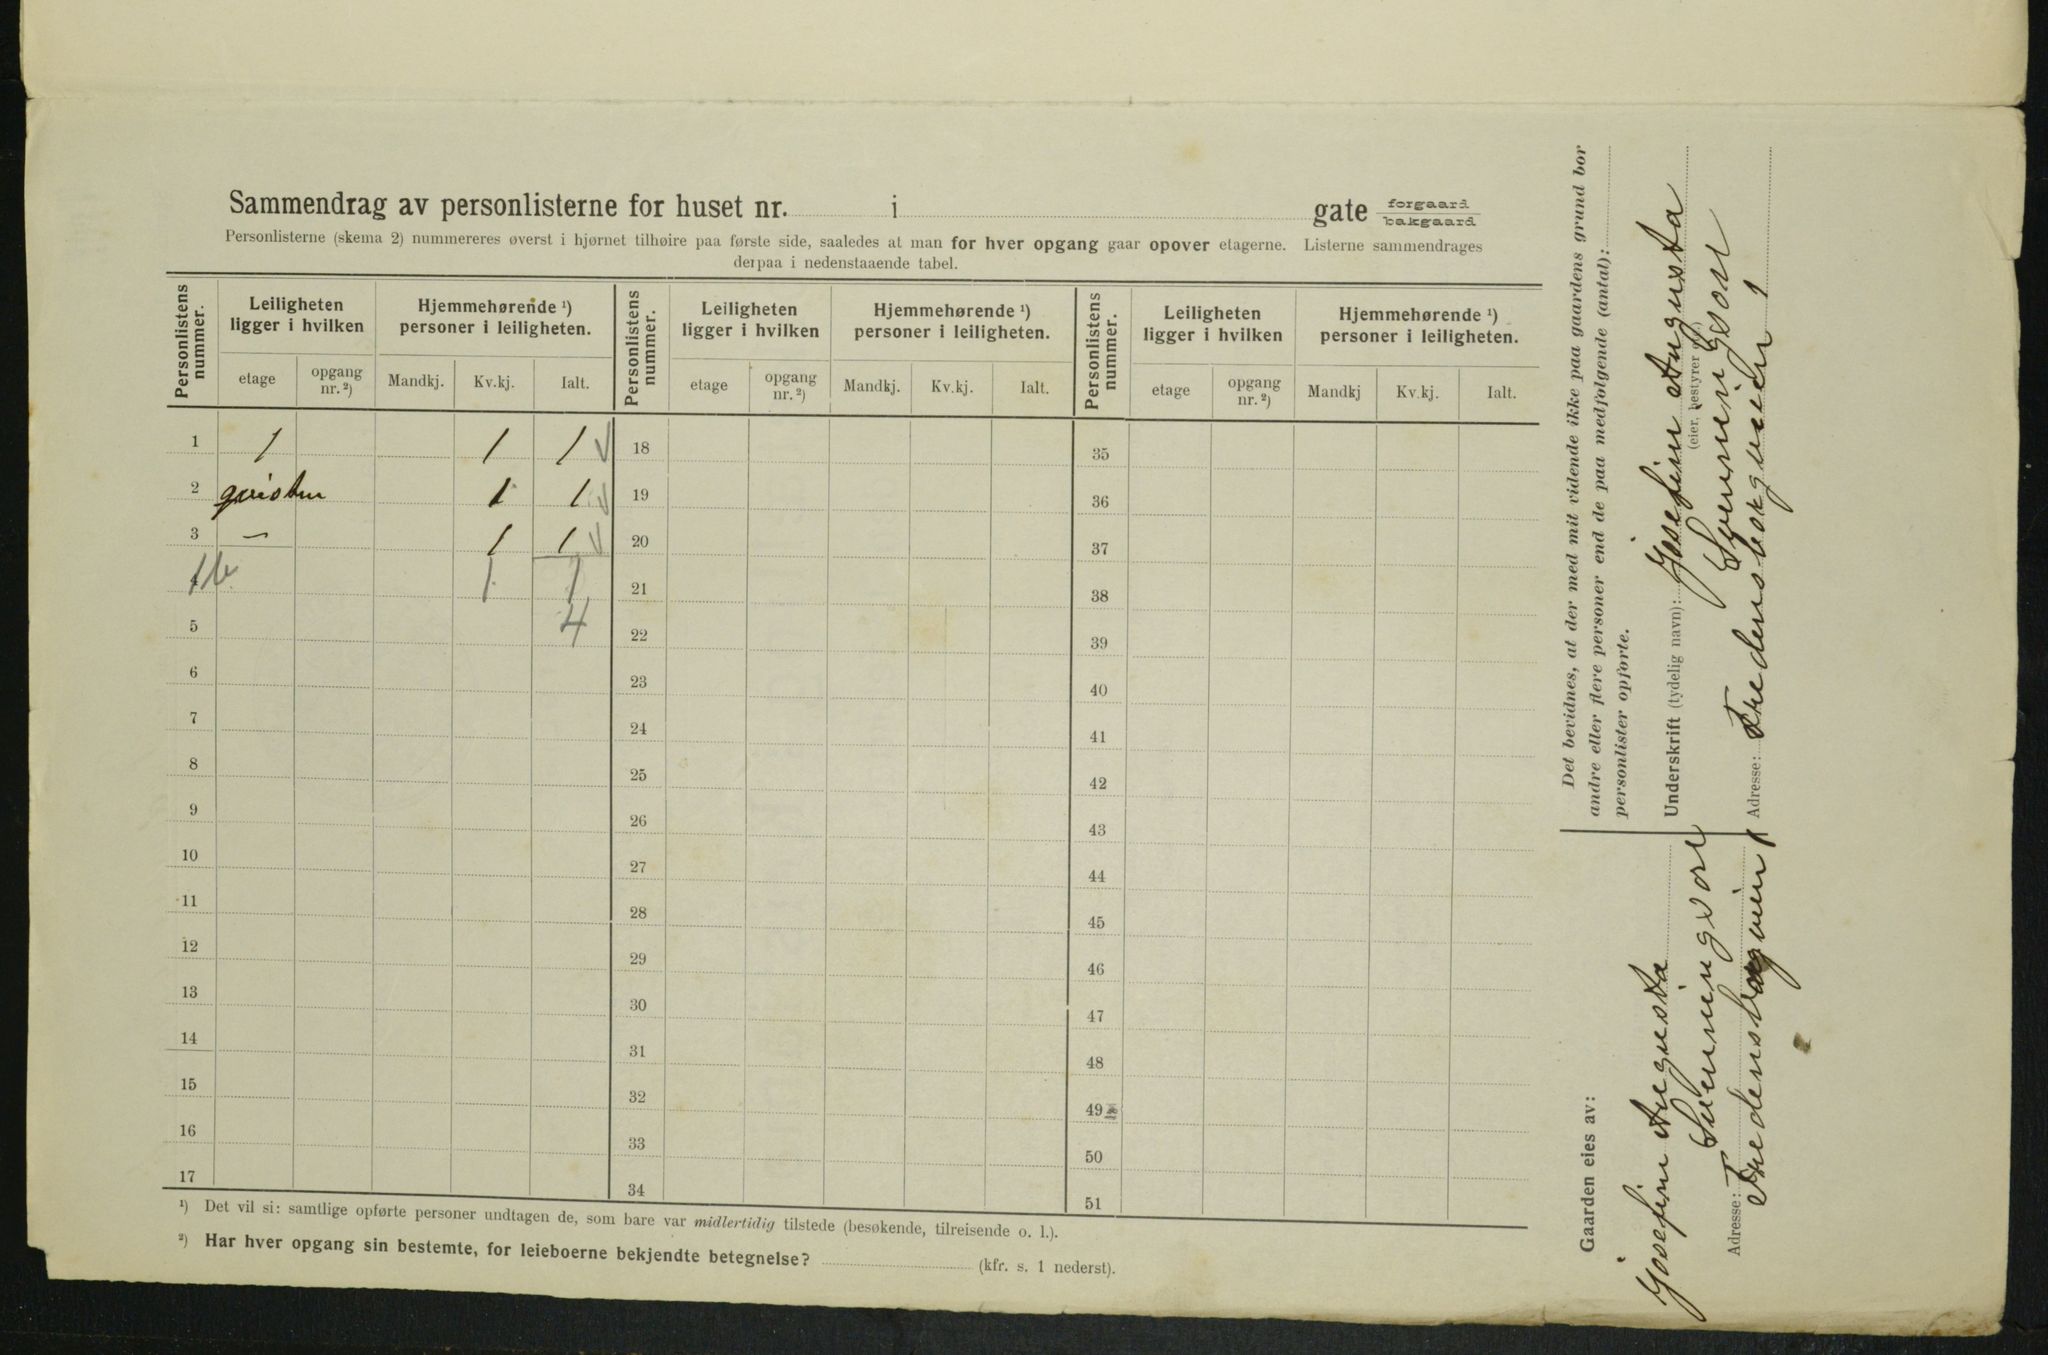 Sammendrag av personlisterne for huset nr. i gate forgaard bakgaard
Personlisterne (skema 2) nummereres øverst i hjørnet tilhøire paa første side, saaledes at man for hver opgang gaar opover etagerne. Listerne sammendrages
derpaa i nedenstaaende tabel.
Personlistens nummer. Leiligheten ligger i hvilken Hjemmehørende ¹) personer i leiligheten. Personlistens nummer. Leiligheten ligger i hvilken Hjemmehørende ¹) personer i leiligheten. Personlistens nummer. Leiligheten ligger i hvilken Hjemmehørende ¹) personer i leiligheten.
etage opgang nr. ²) Mandkj. Kv.kj. Ialt. etage opgang nr. ²) Mandkj. Kv.kj. Ialt. etage opgang nr. ²) Mandkj Kv.kj. Ialt.
1 1 1 1 √ 18 35
2 qvisten 1 1 √ 19 36
3 — 1 1 √ 20 37
1b 1 1 21 38
5 4 22 39
6 23 40
7 24 41
8 25 42
9 26 43
10 27 44
11 28 45
12 29 46
13 30 47
14 31 48
15 32 49
16 33 50
17 34 51
¹) Det vil si: samtlige opførte personer undtagen de, som bare var midlertidig tilstede (besøkende, tilreisende o. l.).
²) Har hver opgang sin bestemte, for leieboerne bekjendte betegnelse? (kfr. s. 1 nederst).
Gaarden eies av:
Josefine Augusta
Svenningsen
Adresse: Fredensborgveien 1
Det bevidnes, at der med mit vidende ikke paa gaardens grund bor
andre eller flere personer end de paa medfølgende (antal):
personlister opførte.
Underskrift (tydelig navn): Josefine Augusta
(eier, bestyrer
Svenningsen
Adresse: Fredensborgveien 1